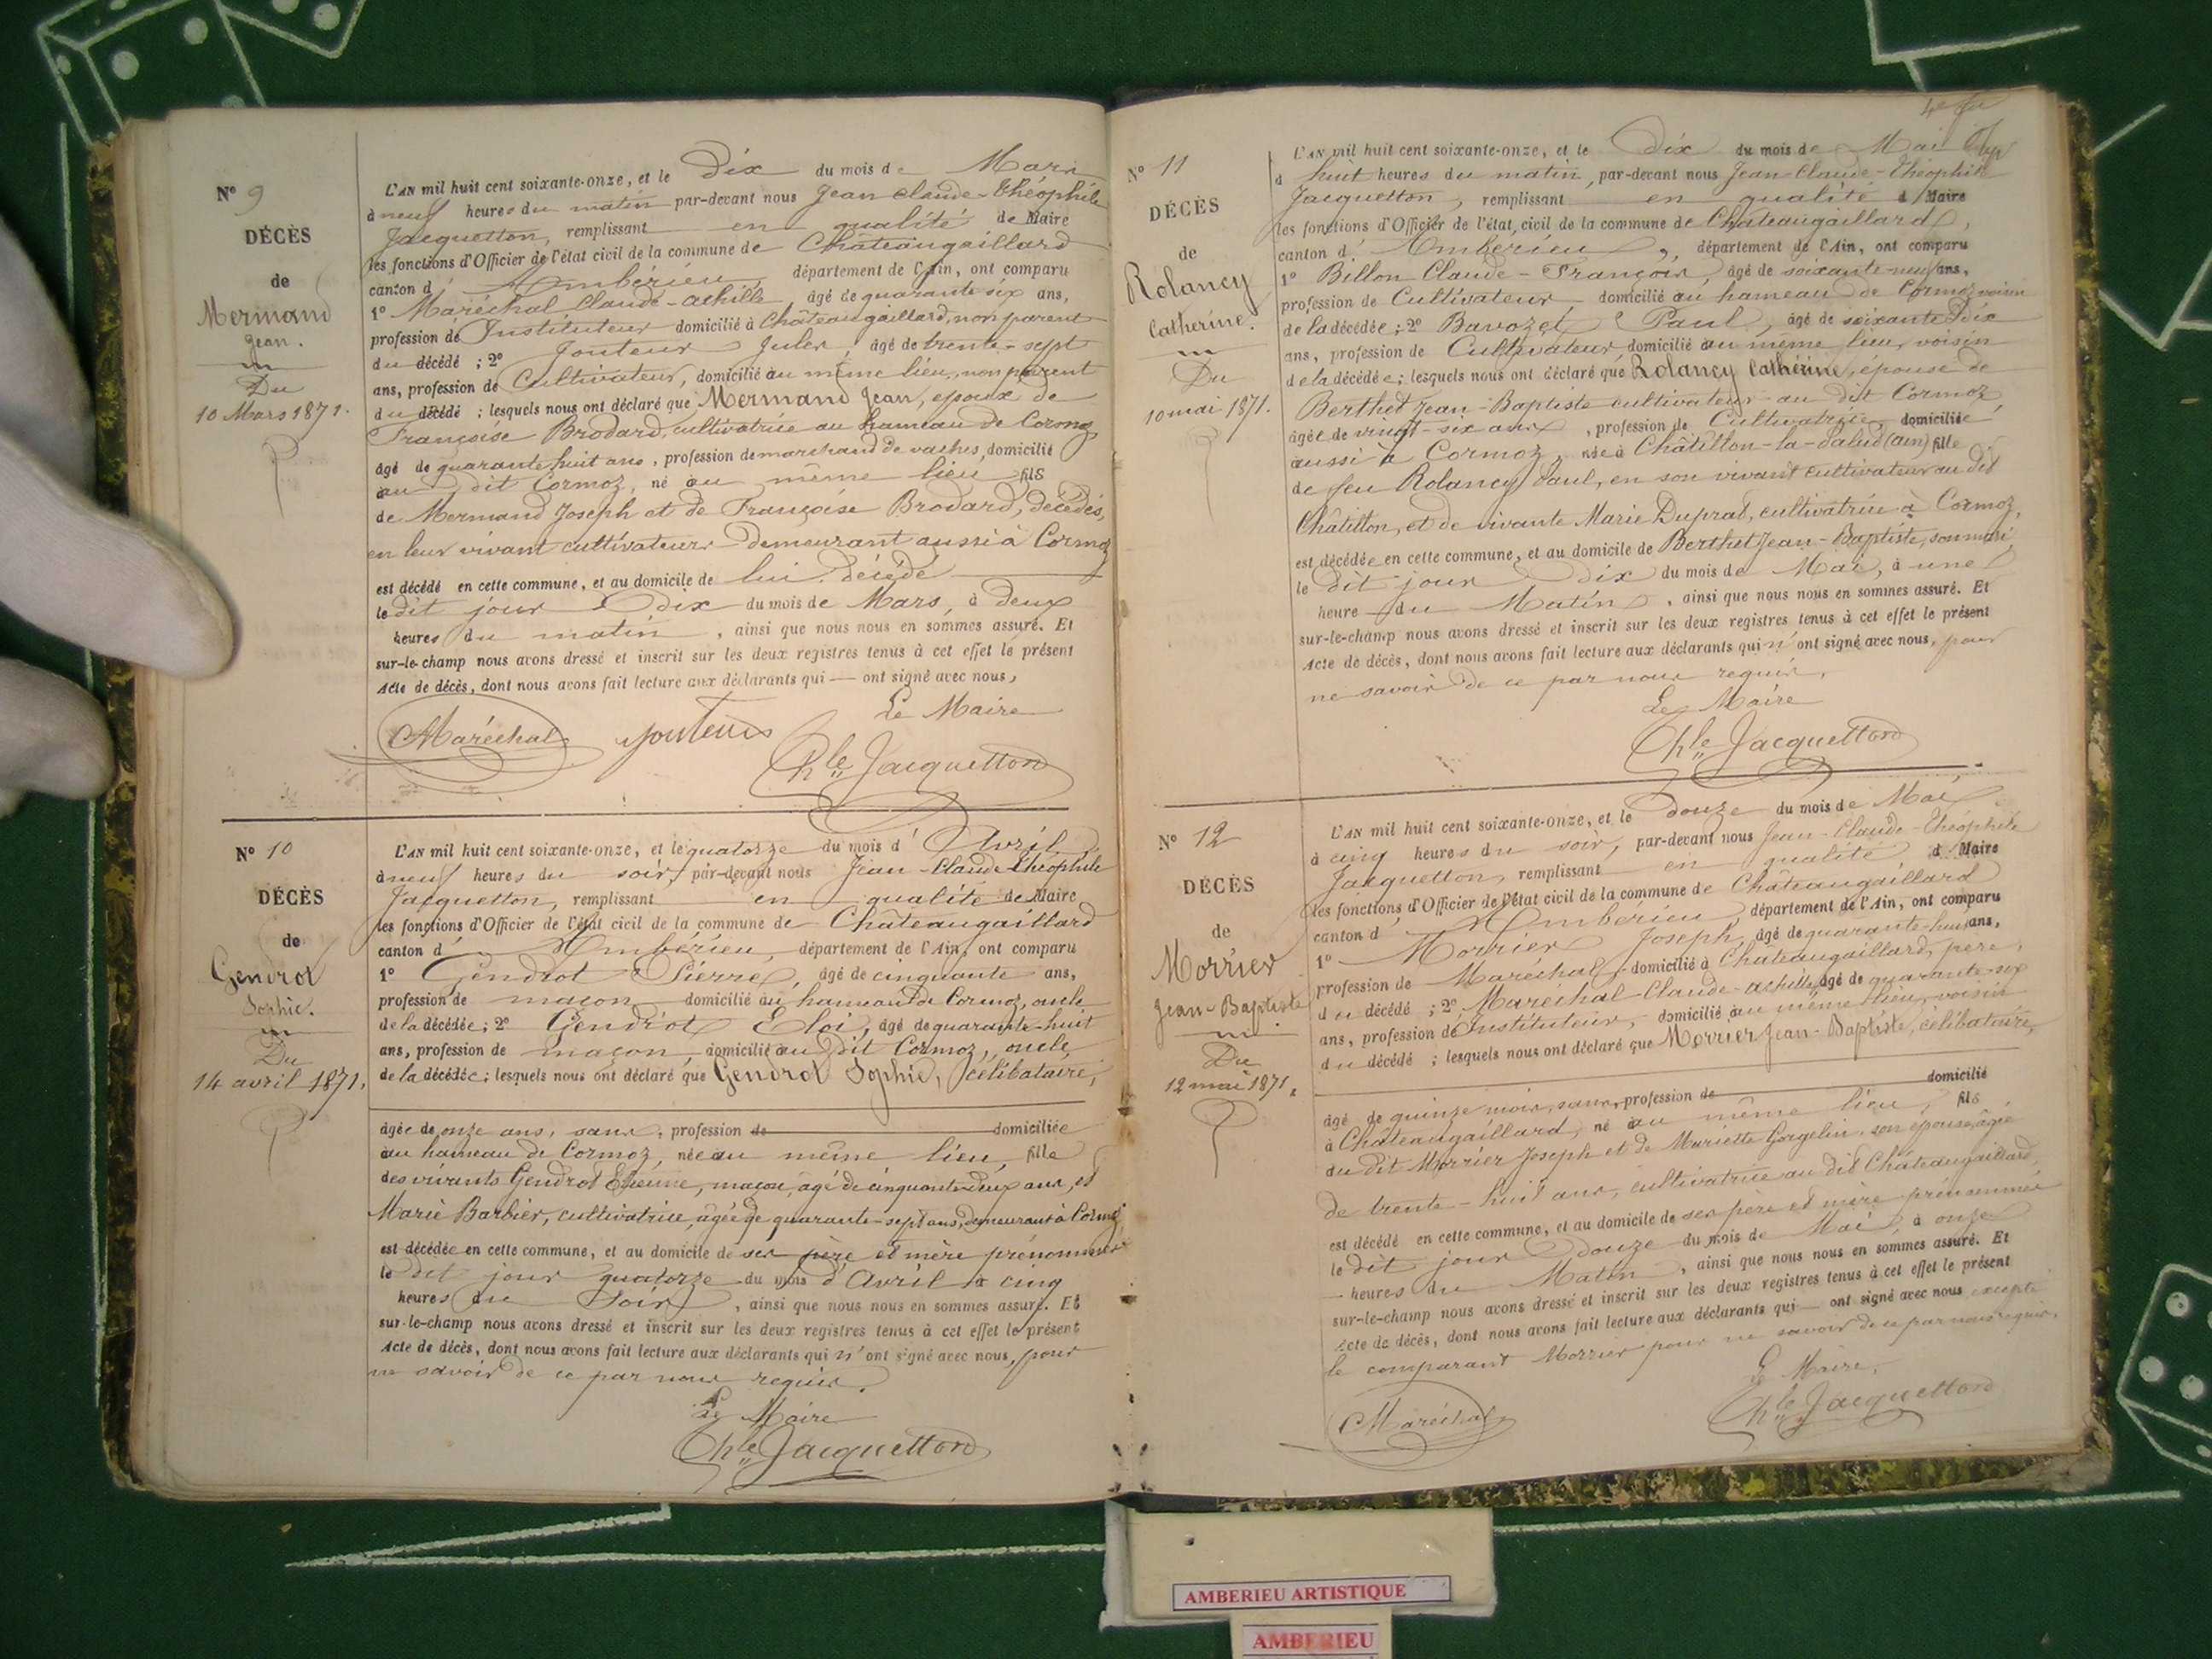 N° 9
DÉCÈS
de
Mermand
Jean.
Du
10 Mars 1871.
L'AN mil huit cent soixante-onze, et le Dix du mois de Mars
à neuf heures du matin par-devant nous Jean Claude-Théophile
Jacquetton, remplissant en qualité de Maire
les fonctions d'Officier de l'état civil de la commune de Châteaugaillard
canton d'Ambérieu, département de l'Ain, ont comparu
1° Maréchal Claude-Achille, âgé de quarante six ans,
profession de Instituteur domicilié à Châteaugaillard, non parent
du décédé ; 2° Jouteur Jules, âgé de trente-sept
ans, profession de Cultivateur, domicilié au même lieu, non parent
du décédé ; lesquels nous ont déclaré que Mermand Jean, époux de
Françoise Brodard, cultivatrice au hameau de Cormoz
âgé de quarante huit ans, profession de marchand de vaches, domicilié
au dit Cormoz, né au même lieu fils
de Mermand Joseph et de Françoise Brodard, décédés,
en leur vivant cultivateurs demeurant aussi à Cormoz
est décédé en cette commune, et au domicile de lui décédé
le dit jour dix du mois de Mars, à deux
heures du matin, ainsi que nous nous en sommes assuré. Et
sur-le-champ nous avons dressé et inscrit sur les deux registres tenus à cet effet le présent
Acte de décès, dont nous avons fait lecture aux déclarants qui — ont signé avec nous,
Le Maire
Maréchal Jouteur
Chle Jacquetton
N° 10
DÉCÈS
de
Gendrot
Sophie.
Du
14 avril 1871.
L'AN mil huit cent soixante-onze, et le quatorze du mois d'Avril
à neuf heures du soir, par-devant nous Jean-Claude-Théophile
Jacquetton, remplissant en qualité de Maire
les fonctions d'Officier de l'état civil de la commune de Châteaugaillard
canton d'Ambérieu, département de l'Ain, ont comparu
1° Gendrot Pierre, âgé de cinquante ans,
profession de maçon domicilié au hameau de Cormoz, oncle
de la décédée ; 2° Gendrot Eloi, âgé de quarante-huit
ans, profession de maçon, domicilié au dit Cormoz, oncle
de la décédée ; lesquels nous ont déclaré que Gendrot Sophie, célibataire,
âgée de onze ans, sans, profession de domiciliée
au hameau de Cormoz, née au même lieu, fille
des vivants Gendrot Etienne, maçon, âgé de cinquante-deux ans, et
Marie Barbier, cultivatrice, âgée de quarante-sept ans, demeurant à Cormoz,
est décédée en cette commune, et au domicile de ses père et mère prénommés
le dit jour quatorze du mois d'Avril à cinq
heures du Soir, ainsi que nous nous en sommes assuré. Et
sur-le-champ nous avons dressé et inscrit sur les deux registres tenus à cet effet le présent
Acte de décès, dont nous avons fait lecture aux déclarants qui n'ont signé avec nous, pour
ne savoir de ce par nous requis.
Le Maire
Chle Jacquetton
N° 11
DÉCÈS
de
Rolancy
Catherine.
Du
10 mai 1871.
L'AN mil huit cent soixante-onze, et le Dix du mois de Mai
à huit heures du matin, par-devant nous Jean-Claude-Théophile
Jacquetton, remplissant en qualité d Maire
les fonctions d'Officier de l'état civil de la commune de Châteaugaillard,
canton d'Ambérieu, département de l'Ain, ont comparu
1° Billon Claude-François, âgé de soixante-neuf ans,
profession de Cultivateur domicilié au hameau de Cormoz, voisin
de la décédée ; 2° Bavozet Paul, âgé de soixante dix
ans, profession de Cultivateur, domicilié au même lieu, voisin
de la décédée ; lesquels nous ont déclaré que Rolancy Catherine, épouse de
Berthet Jean-Baptiste cultivateur au dit Cormoz,
âgée de vingt-six ans, profession de Cultivatrice, domiciliée
aussi à Cormoz, née à Châtillon-la-Palud (ain) fille
de feu Rolancy Paul, en son vivant cultivateur au dit
Châtillon, et de vivante Marie Duprat, cultivatrice à Cormoz,
est décédée en cette commune, et au domicile de Berthet Jean-Baptiste, son mari,
le dit jour dix du mois de Mai, à une
heure du Matin, ainsi que nous nous en sommes assuré. Et
sur-le-champ nous avons dressé et inscrit sur les deux registres tenus à cet effet le présent
Acte de décès, dont nous avons fait lecture aux déclarants qui n'ont signé avec nous, pour
ne savoir de ce par nous requis.
Le Maire
Chle Jacquetton
N° 12
DÉCÈS
de
Morrier
Jean-Baptiste
Du
12 mai 1871.
L'AN mil huit cent soixante-onze, et le douze du mois de Mai
à cinq heures du soir, par-devant nous Jean-Claude-Théophile
Jacquetton, remplissant en qualité d Maire
les fonctions d'Officier de l'état civil de la commune de Châteaugaillard
canton d'Ambérieu, département de l'Ain, ont comparu
1° Morrier Joseph, âgé de quarante-huit ans,
profession de Maréchal, domicilié à Chateaugaillard, père,
du décédé ; 2° Maréchal Claude-achille, âgé de quarante-six
ans, profession de Instituteur, domicilié au même lieu, voisin
du décédé ; lesquels nous ont déclaré que Morrier Jean-Baptiste, célibataire,
âgé de quinze mois, sans, profession de domicilié
à Châteaugaillard, né au même lieu, fils
du dit Morrier Joseph et de Mariette Gorgelin, son épouse, âgée
de trente-huit ans, cultivatrice au dit Châteaugaillard,
est décédé en cette commune, et au domicile de ses père et mère prénommés
le dit jour douze du mois de Mai, à onze
heures du Matin, ainsi que nous nous en sommes assuré. Et
sur-le-champ nous avons dressé et inscrit sur les deux registres tenus à cet effet le présent
Acte de décès, dont nous avons fait lecture aux déclarants qui — ont signé avec nous excepté
le comparant Morrier pour ne savoir de ce par nous requis.
Le Maire,
Maréchal Chle Jacquetton
AMBERIEU ARTISTIQUE
AMBERIEU